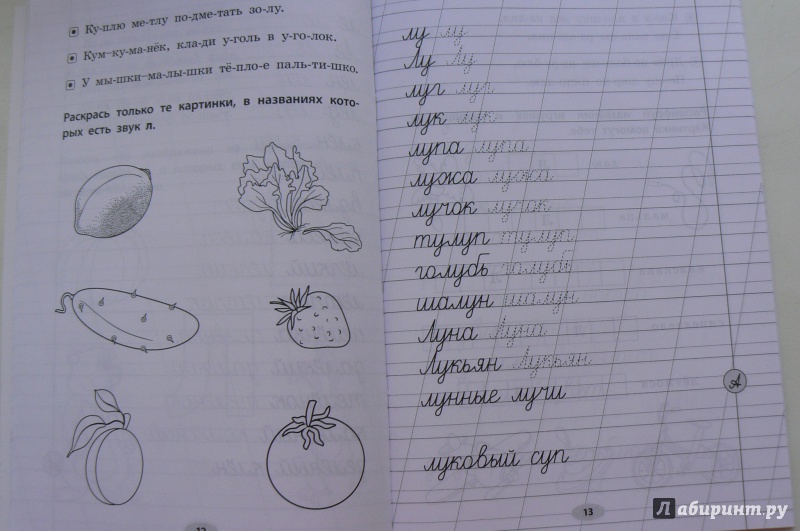 Ку-плю ме-тлу по-дме-тать зо-лу.
Кум-ку-ма-нёк, кла-ди у-голь в у-го-лок.
У мы-шки-ма-лы-шки тё-пло-е паль-ти-шко.
Раскрась только те картинки, в названиях кото-
рых есть звук л.
12
лу лу
Лу Лу
луг луг
лук лук
лупа лупа
лужа лужа
лучок лучок
тулуп тулуп
голубь голубь
шалун шалун
Луна Луна
Лукьян Лукьян
лунные лучи
луковый суп
13
Лабиринт.ру